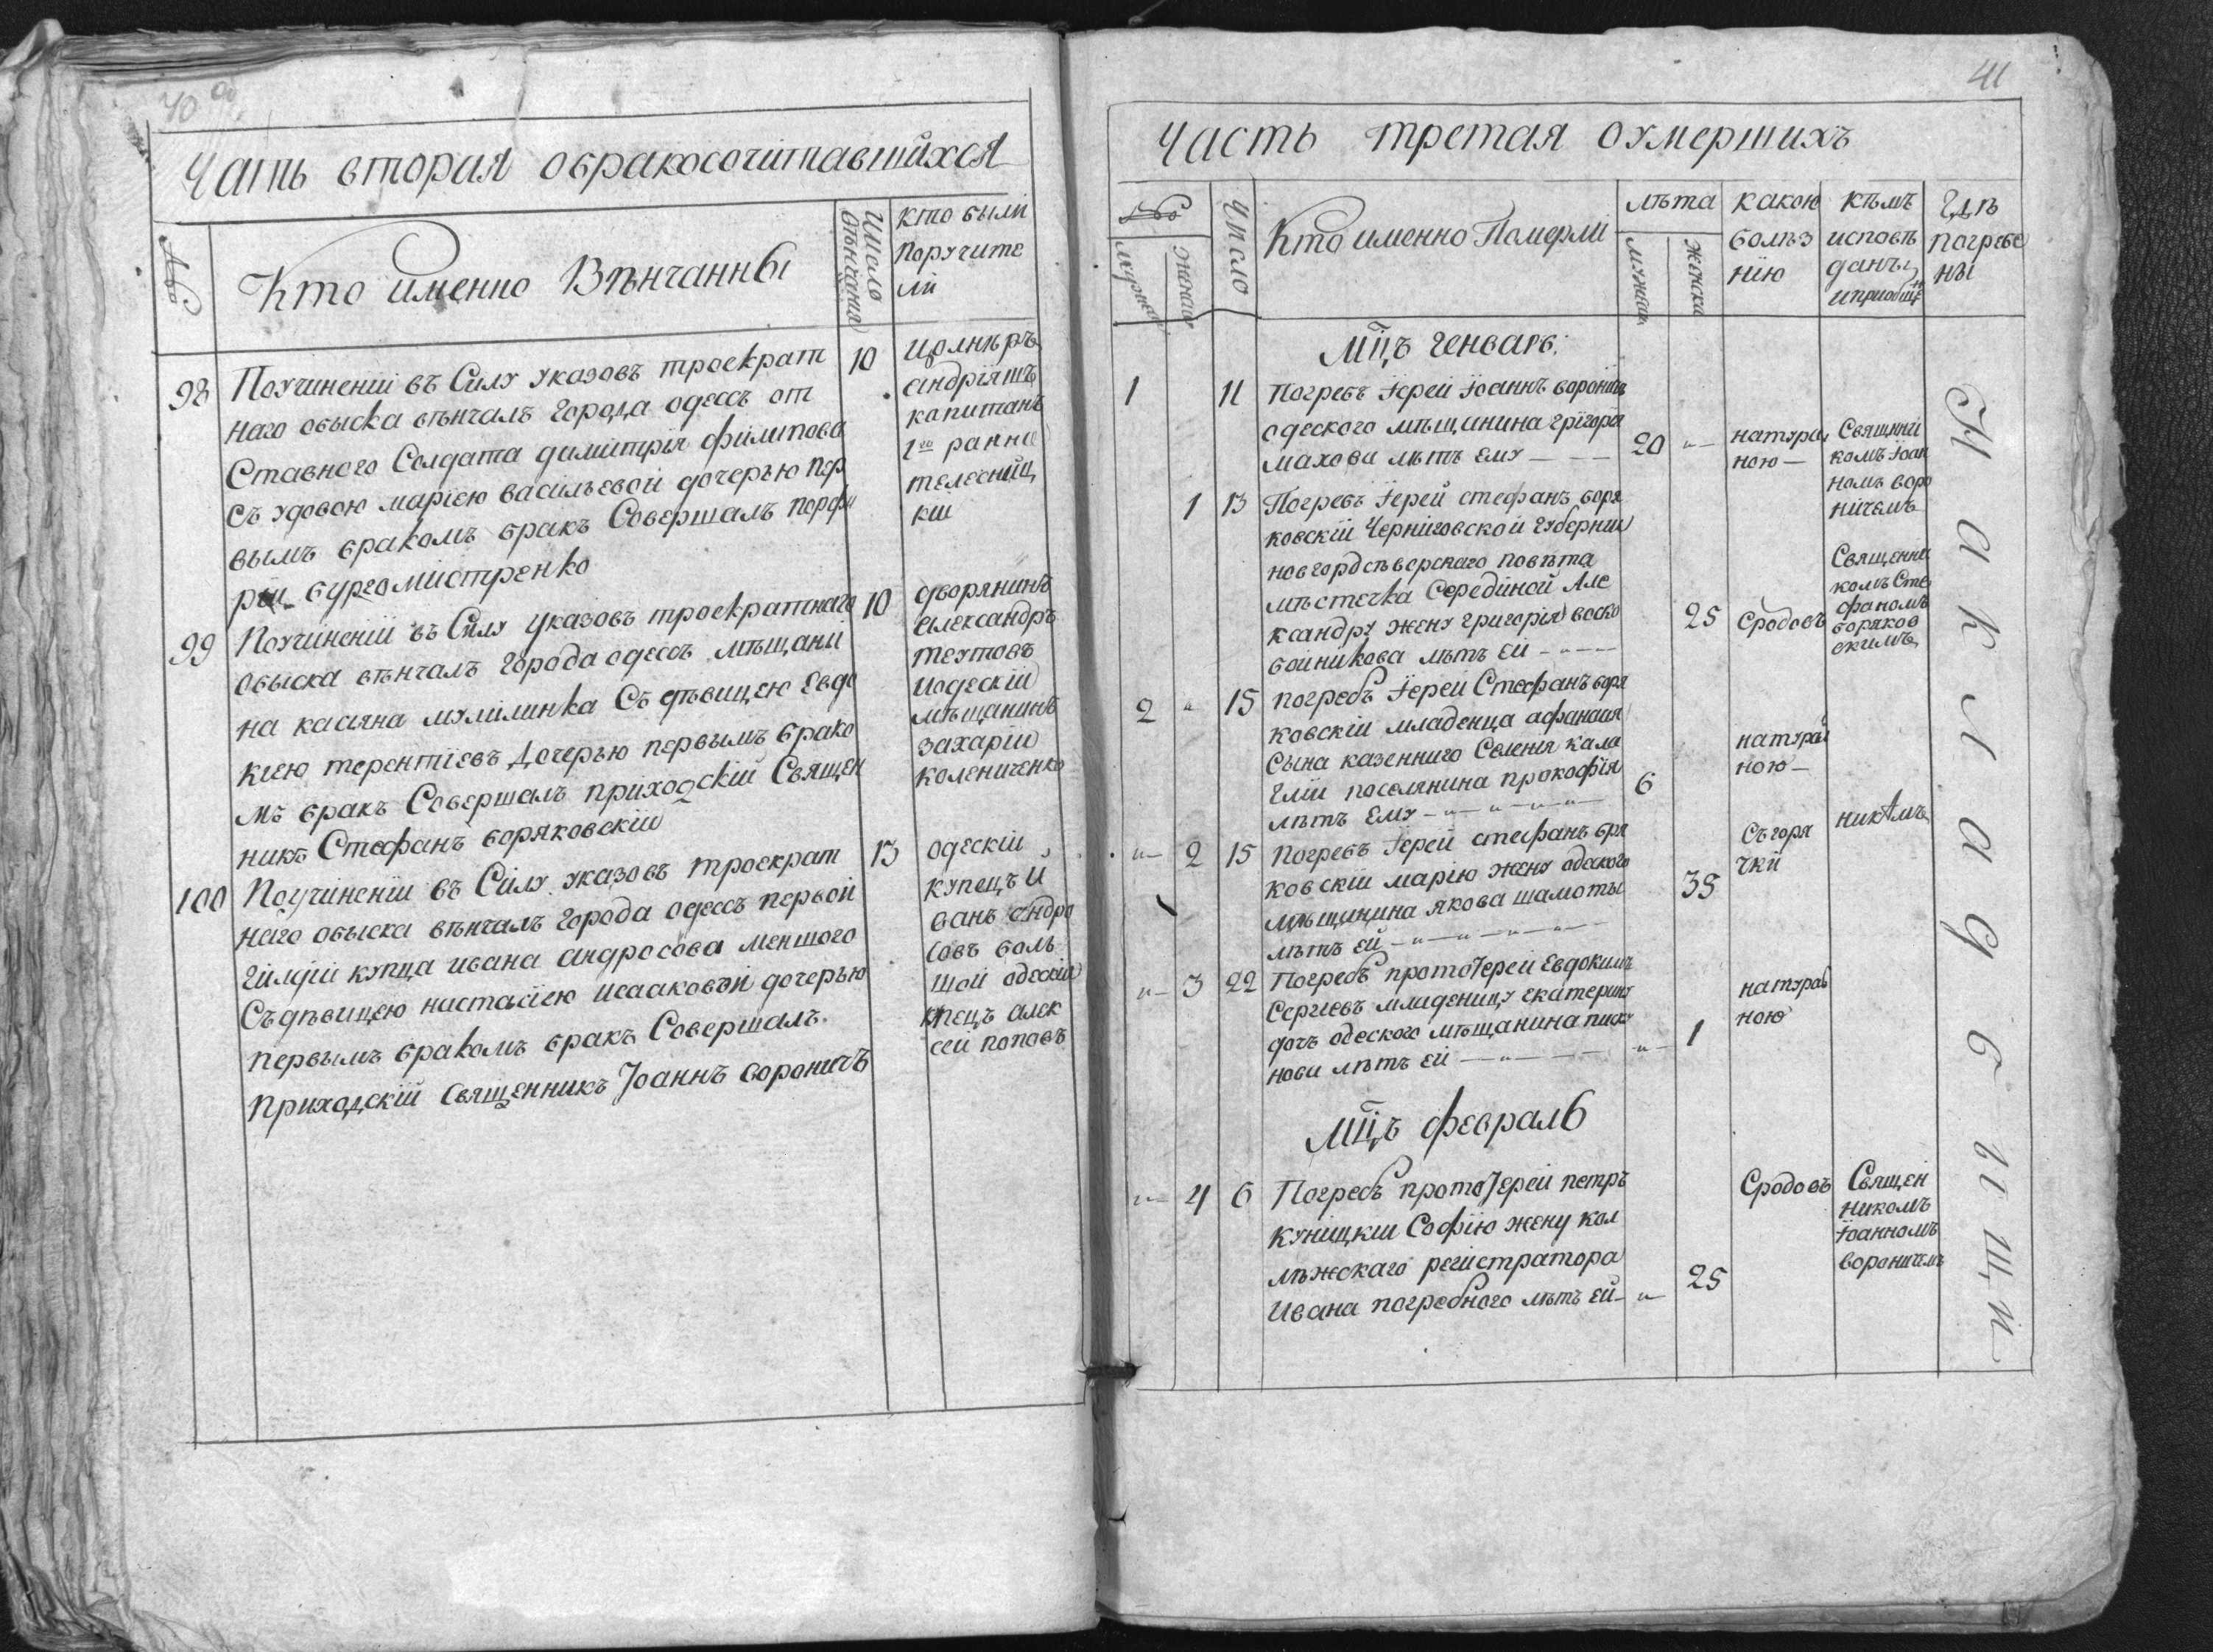 40
Часть вторая обракосочитавшихся
№
Кто именно Вѣнчанны
Число вѣнчания
кто были
поручите
ли
98
Поучинении въ Силу указовъ троекрат
наго обыска вѣнчалъ города одессъ от
Ставного Солдата димитрія филипова
съ удовою маріею васильевой дочерью пер
вымъ бракомъ бракъ Совершалъ порфи
рій бургомистренко
10
андріяшъ
капитанъ
99
Поучинении въ Силу указовъ троекратнаго
обыска вѣнчалъ города одессъ мѣщани
на касяна Съ дѣвицею Евдо
кіею терентіевъ дочерью первымъ брако
мъ бракъ Совершалъ приходскій Священ
никъ Стефанъ Боряковскій
10
дворянинъ
александръ
теутовъ
иодескій
мѣщанинъ
захарій
колениченко
100
Поучинении въ Силу указовъ троекрат
наго обыска вѣнчалъ города одессъ первой
гилдіи купца ивана андросова меншого
Съ дѣвицею настасіею исааковой дочерью
первымъ бракомъ бракъ Совершалъ
приходскій священникъ Іоаннъ вороничъ
13
одескій
купецъ и
ванъ андро
совъ боль
шой одескій
купецъ алек
сей поповъ
41
Часть третая оумершихъ
№
Число
Кто именно Померли
лѣта
какою
болѣз
нію
кѣмъ
исповѣ
даны
и приобще
Гдѣ
погребе
ны
мужеска
женска
мцъ генварь
1
11
Погребъ Іерей Іоаннъ вороничъ
одеского мѣщинина григорія
махова лѣтъ ему
20
натурал
ною
Священни
комъ Іоан
номъ воро
ничемъ
1
13
Погребъ Іерей стефанъ боря
ковскій Черниговской губерніи
новгордсѣверскаго повѣта
мѣстечка Серединой Але
ксандру жену григорія воско
бойникова лѣтъ ей
25
Сродовъ
Священни
комъ Сте
фаномъ
боряков
скимъ
2
15
погребъ Іерей Стефанъ боря
ковскій младенца афанасія
Сына казенниго Селенія кала
глій поселянина прокофія
лѣтъ Ему
6
натурал
ною
никѣмъ
2
15
Погребъ Іерей стефанъ бря
ковскій марію жену одеского
мѣщинина якова шамоты
лѣтъ ей
35
Съ горя
чки
3
22
Погребъ протоіерей Евдокимъ
Сергіевъ младеницу екатерину
дочь одеского мѣщанина
нови лѣтъ ей
1
натурал
ною
мцъ февраль
4
6
Погребъ протоіерей петръ
куницкій Софію жену кол
лѣжскаго регистратора
Ивана погребного лѣтъ ей
25
Сродовъ
Священ
никомъ
Іоанномъ
вороничемъ
На кладбищи